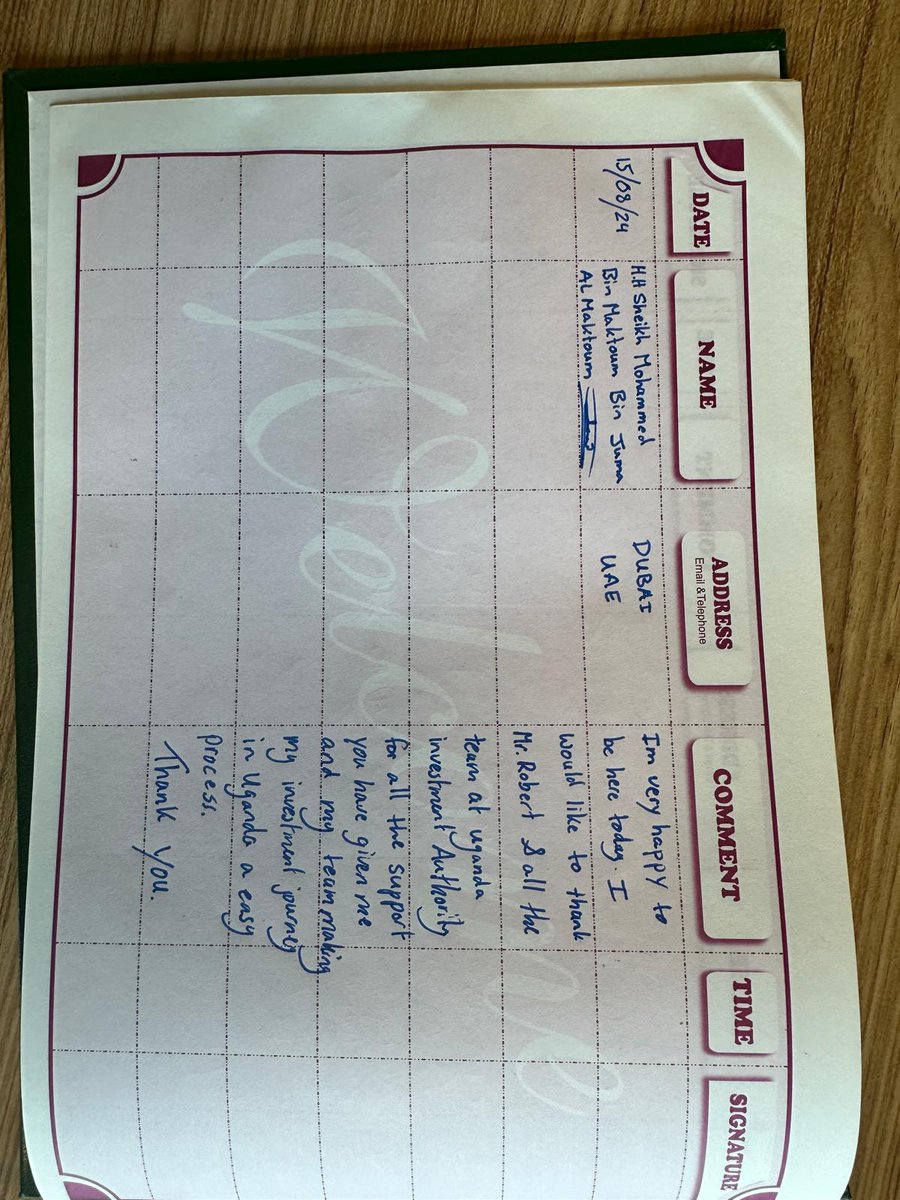 DATE
NAME
ADDRESS
Email &Telephone
COMMENT
TIME
SIGNATURE
15/08/24
H.H Sheikh Mohammed
Bin Maktoum Bin Juma
AL Maktoum
DUBAI
UAE
Im very happy to
be here today. I
would like to thank
Mr. Robert & all the
team at uganda
investment Authority
for all the support
you have given me
and my team making
my investment journey
in Uganda a easy
process.
Thank you.
Welcome